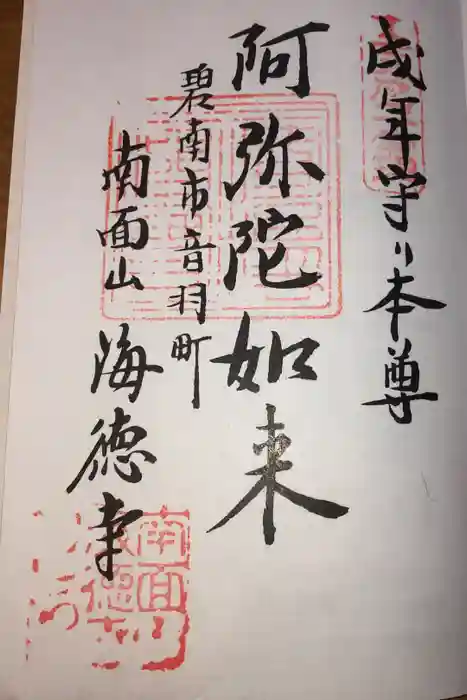 戌年守り本尊
阿弥陀如来
碧南市音羽町
南面山 海徳寺
南面山
海徳寺